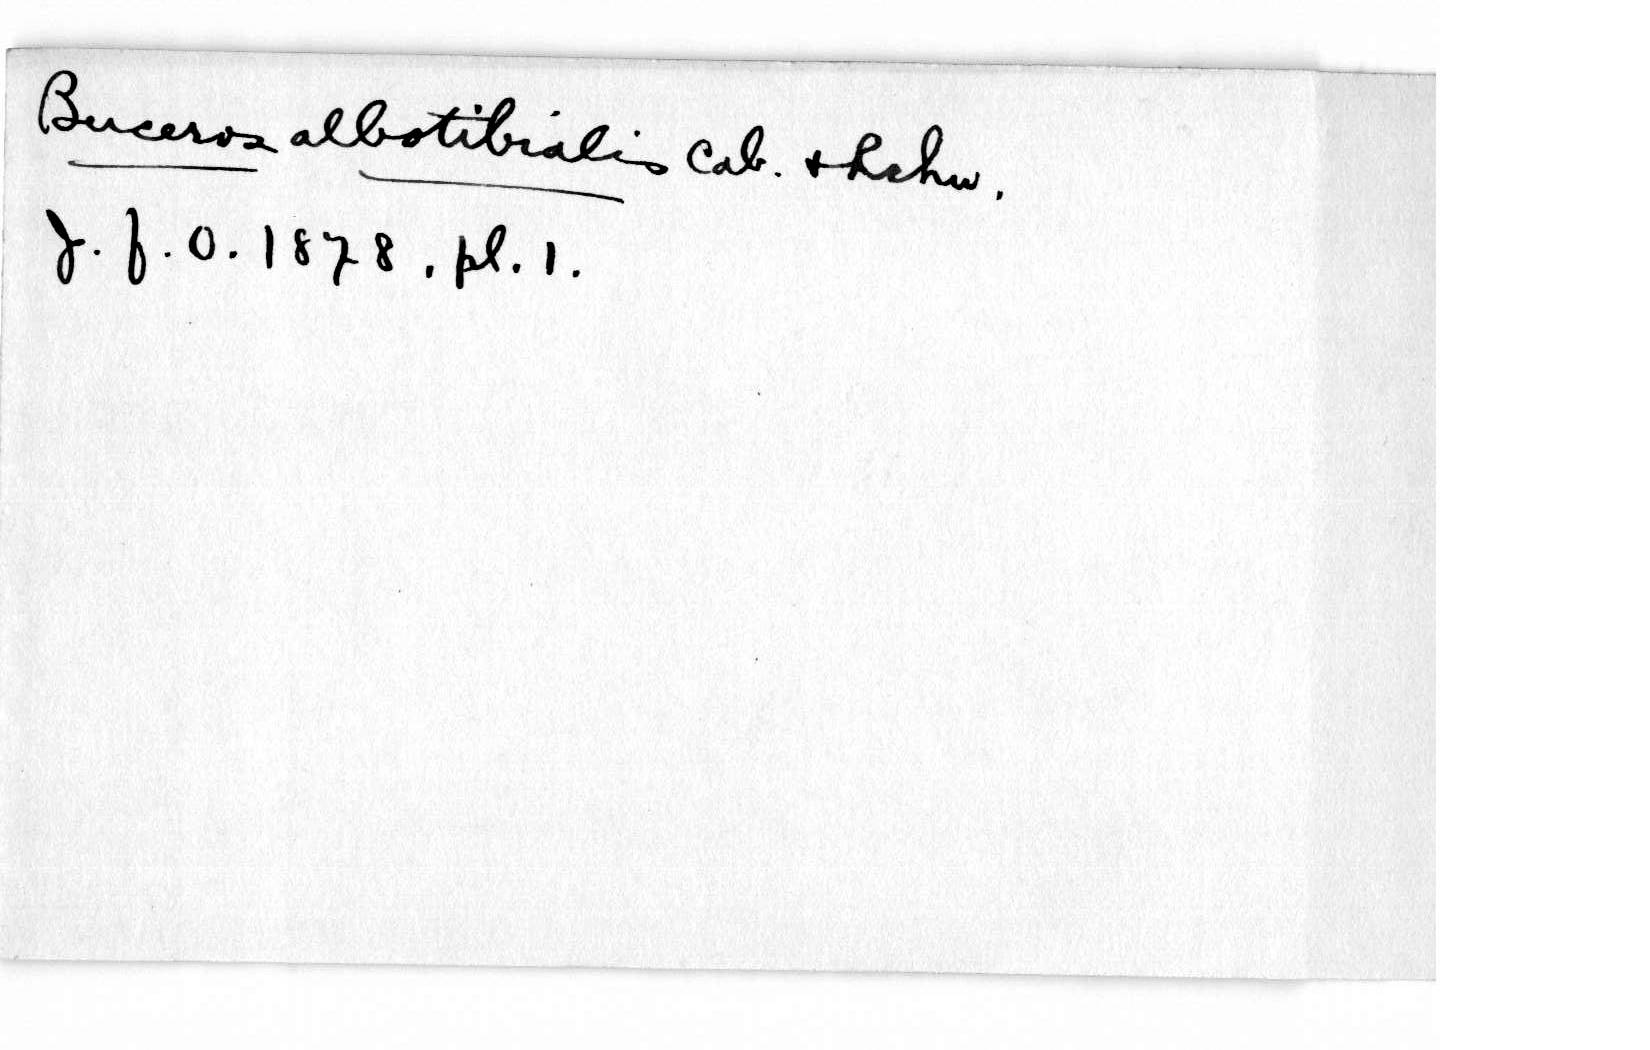 Buceros albotibialis Cab. + Rchw.
J. f. O. 1878, pl. 1.